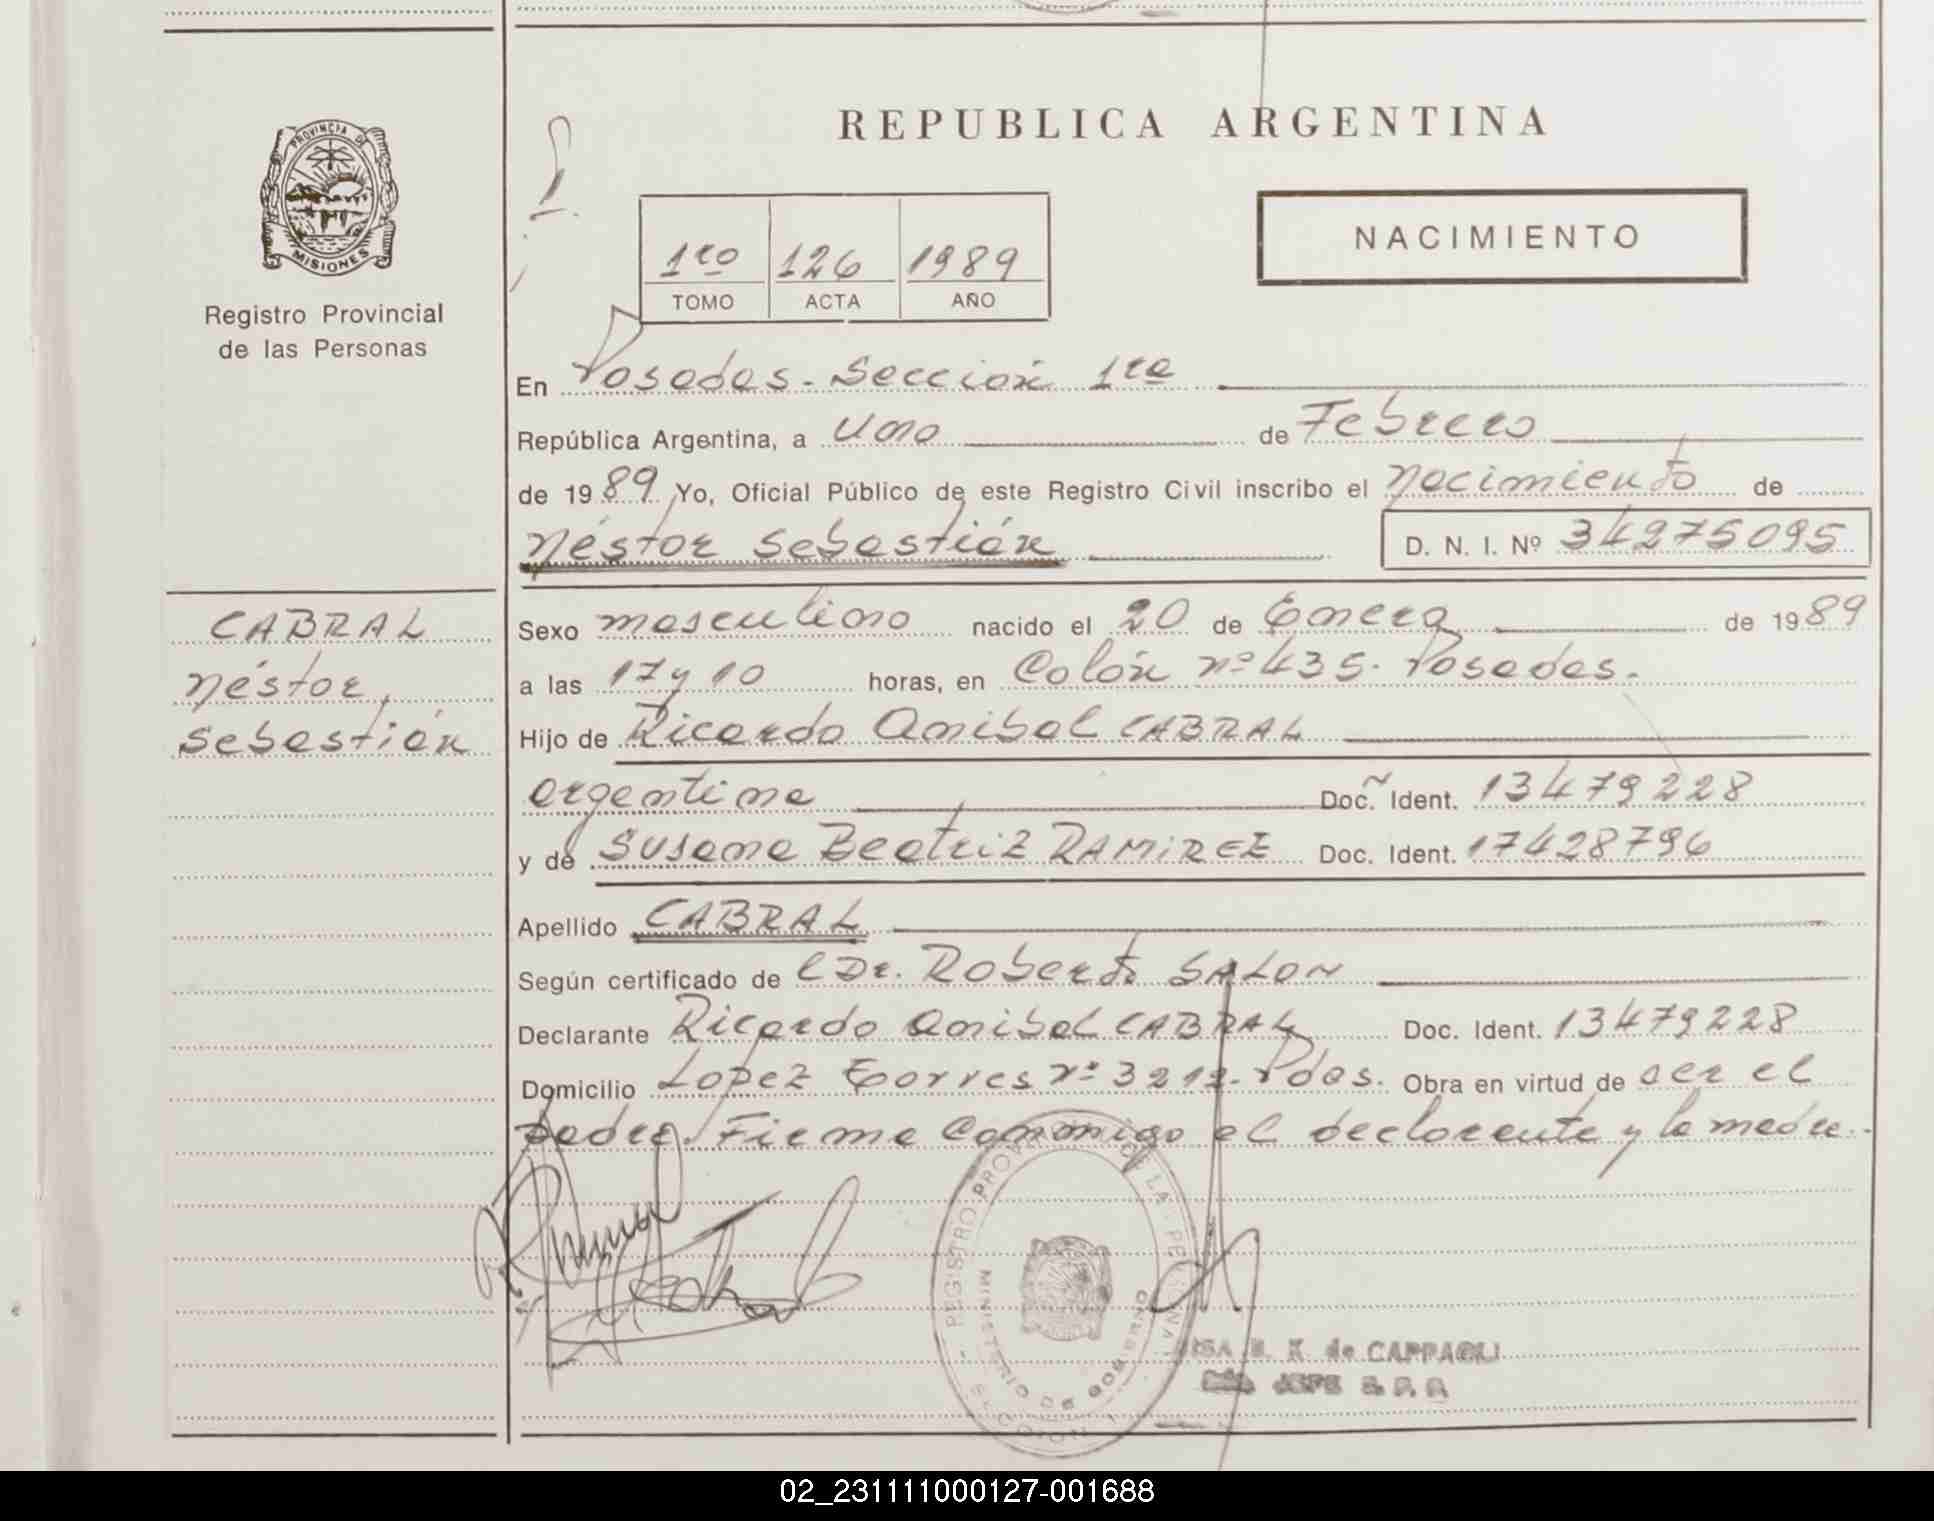 PROVINCIA DE
MISIONES
Registro Provincial
de las Personas
REPUBLICA ARGENTINA
NACIMIENTO
1ro 126 1989
TOMO ACTA AÑO
En Posadas - Sección 1ra
República Argentina, a Uno de Febrero
de 1989 Yo, Oficial Público de este Registro Civil inscribo el nacimiento de
Néstor Sebastián D. N. I. Nº 34275095
CABRAL
Néstor
Sebastián
Sexo masculino nacido el 20 de Enero de 1989
a las 17 y 10 horas, en Colón nº 435. Posadas.
Hijo de Ricardo Anibal CABRAL
argentino Doc. Ident. 13479228
y de Susana Beatriz RAMIREZ Doc. Ident. 17428796
Apellido CABRAL
Según certificado de el Dr. Roberto SALON
Declarante Ricardo Anibal CABRAL Doc. Ident. 13479228
Domicilio Lopez Torres nº 3212- Pdas. Obra en virtud de ser el
padre. Firma conmigo el declarante y la madre.
REGISTRO PROVINCIAL DE LA PERSONAS
MINISTERIO DE GOBIERNO
SECCION
K. de CAPPAGLI
JEFE
02_231111000127-001688